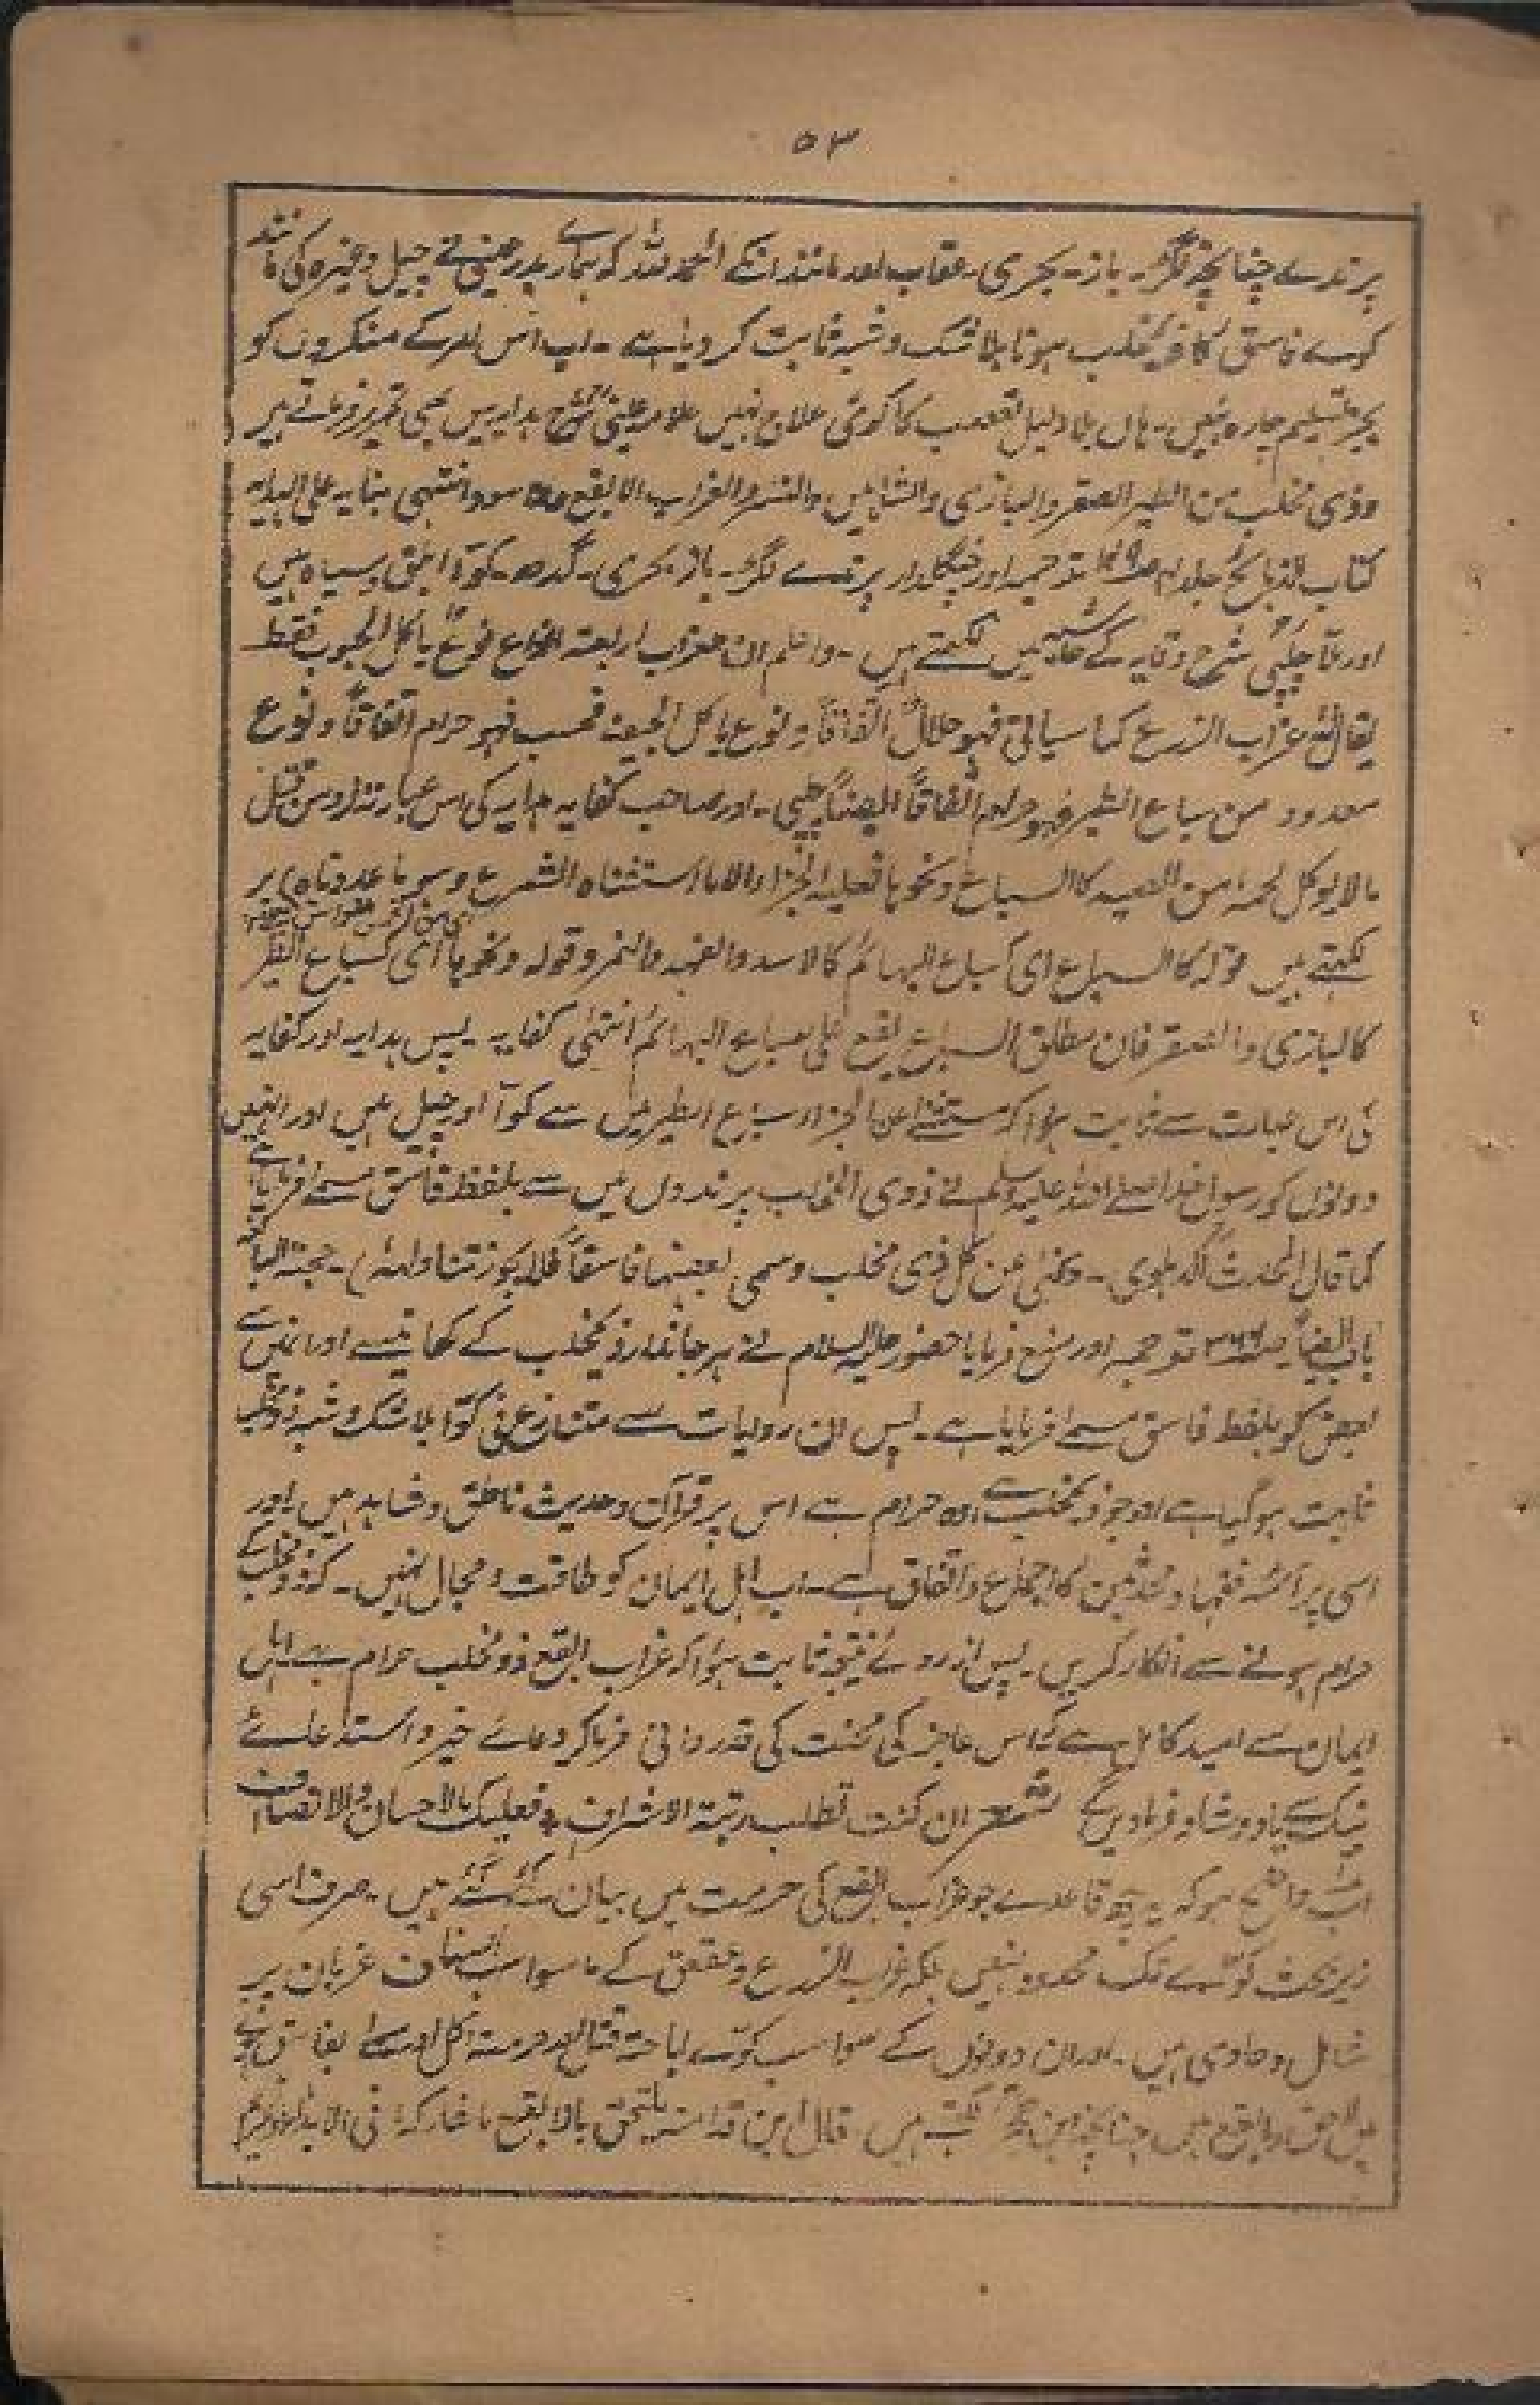 ۵۳
پرندے چنانچہ لگڑ۔ باز۔ بحری۔ عقاب اور مانند انکے الحمد للہ کہ ہمارے بدر عینی نے چیل وغیرہ کی مانند
کوے فاسق کا ذیمخلب ہونا بلا شک و شبہ ثابت کر دیا ہے۔ اب اس امر کے منکروں کو
بجز تسلیم چارہ نہیں۔ ہاں بلا دلیل تعصب کا کوئی علاج نہیں علامہ عینی شرح ہدایہ میں بھی تحریر فرماتے ہیں
وذی مخلب من الطیر الصقر والبازی والشاہین والنسر والغراب الابقع والاسود انتہی بنایہ علی الہدایہ
کتاب الذبائح جلد ترجمہ اور چنگلدار پرندے لگڑ۔ باز بحری۔ گدھ۔ کوّا ابلق و سیاہ ہیں
اور ملّا چلپی شرح وقایہ کے حاشیہ میں لکھتے ہیں۔ واعلم ان الغراب اربعۃ انواع نوعٌ یاکل الحبوب فقط
یقال لہٗ غراب الزرع کما سیاتی فہو حلالٌ اتفاقًا ونوع یاکل الجیفۃ فحسب فہو حرام اتفاقًا ونوع
معدود من سباع الطیر فہو حرام اتفاقًا ایضًا چلپی۔ اور صاحب کفایہ ہدایہ کی اس عبارت (ومن قتل
مالا یوکل لحمہٗ من الصید کالسباع ونحوہا فعلیہ الجزاء الا ما استثناہ الشرع وہو ما عددناہ) پر
لکھتے ہیں قولہ کالسباع ای سباع البہائم کالاسد والفہد والنمر وقولہ ونحوہا ای کسباع الطیر
کالبازی والصقر فان مطلق السباع یقع علی سباع البہائم انتہٰی کفایہ۔ پس ہدایہ اور کفایہ
کی اس عبارت سے ثابت ہوا کہ مستثنےٰ عن الجزاء سباع الطیر میں سے کوّا اور چیل ہیں اور انہیں
دونوں کو رسول خدا صلے اللہ علیہ وسلم نے ذوی المخالب پرندوں میں سے بلفظ فاسق مسمےٰ فرمایا ہے
کما قال المحدث الدہلوی۔ ونہیٰ عن کل ذی مخلب وسمی بعضہا فاسقاً فلا یجوز تناولہٗ)۔ حجۃ اللہ البالغہ
ترجمہ اور منع فرمایا حضور علیہ السلام نے ہر جاندار ذیمخلب کے کھانے سے اور ان میں سے
بعض کو بلفظ فاسق مسمےٰ فرمایا ہے۔ پس ان روایات سے متنازع فی کوّا بلا شک و شبہ ذو مخلب
ثابت ہو گیا ہے اور جو ذیمخلب ہے وہ حرام ہے اس پر قرآن و حدیث ناطق و شاہد ہیں اور
اسی پر ائمہ فقہا و محدثین کا اجماع و اتفاق ہے۔ اب اہل ایمان کو طاقت و مجال نہیں۔ کہ ذو مخلب کے
حرام ہونے سے انکار کریں۔ پس از روئے نتیجہ ثابت ہوا کہ غراب ابقع ذو مخلب حرام ہے اہل
ایمان سے امید کامل ہے کہ اس عاجز کی محنت کی قدردانی فرما کر دعائے خیر و استدعائے
نیک سے یاد و شاد فرماویں گے شعر ان کنت تطلب رتبۃ الاشراف ٭ فعلیک بالاحسان والانصاف
اب واضح ہو کہ یہ قاعدے جو غراب ابقع کی حرمت میں بیان کئے گئے ہیں۔ صرف اسی
زیر بحث کوّے تک محدود نہیں بلکہ غراب الزرع و عقعق کے ما سوا سب اصناف غربان پر
شامل و حاوی ہیں۔ اور ان دونوں کے سوا سب کوّے اباحۃ قتل اور حرمۃ اکل اور
میں لاحق بابقع ہیں چنانچہ ابن حجر لکھتے ہیں۔ قال ابن قدامۃ یلتحق بالابقع ما شارکہٗ فی الایذاء